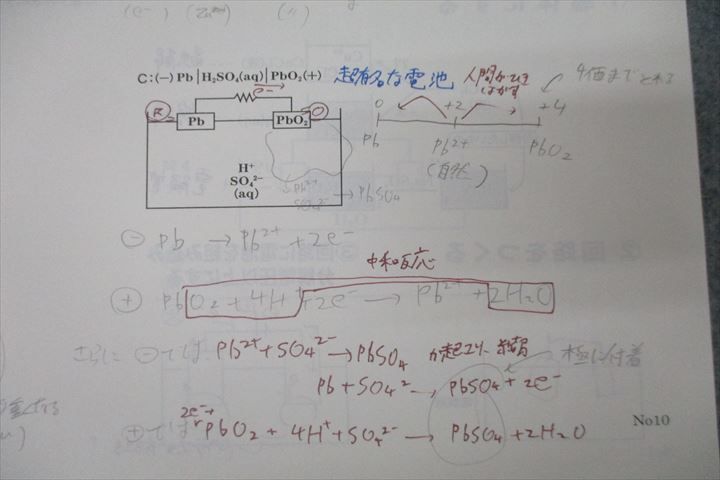 (e⁻) (Zn²⁺) (〃)
C:(−) Pb│H₂SO₄(aq)│PbO₂(+)
超有名な電池
人間がひきはがす
4価までとれる
e⁻
R
Pb
PbO₂
O
0 +2 +4
Pb Pb²⁺ PbO₂
(自然)
H⁺
SO₄²⁻
(aq)
Pb²⁺
SO₄²⁻
→ PbSO₄
⊖ Pb → Pb²⁺ + 2e⁻
中和反応
⊕ PbO₂ + 4H⁺ + 2e⁻ → Pb²⁺ + 2H₂O
さらに ⊖では Pb²⁺ + SO₄²⁻ → PbSO₄ が起こり、結局
極に付着
Pb + SO₄²⁻ → PbSO₄ + 2e⁻
2e⁻+
⊕では PbO₂ + 4H⁺ + SO₄²⁻ → PbSO₄ + 2H₂O
No10